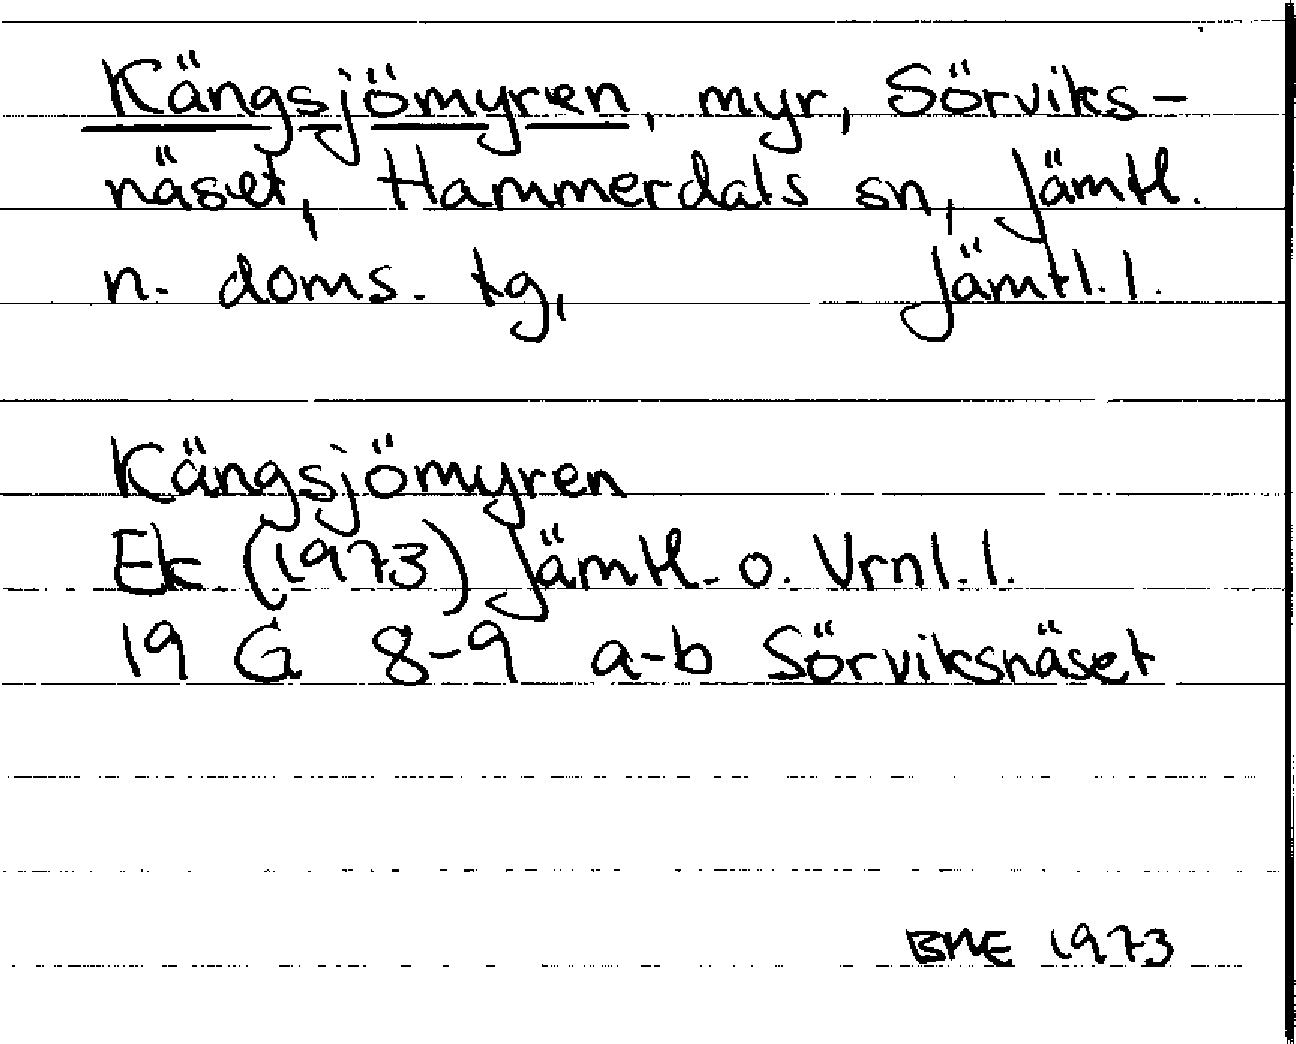 Kängsjömyren, myr, Sörviks-
näset, Hammerdals sn, Jämtl.
n. doms. tg, Jämtl. l.
Kängsjömyren
Ek (1973) Jämtl. o. Vrnl. l.
19 G 8-9 a-b Sörviksnäset
BME 1973